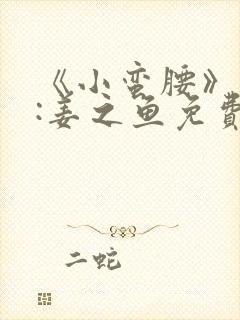 《小蛮腰》
:姜之鱼免費
二蛇